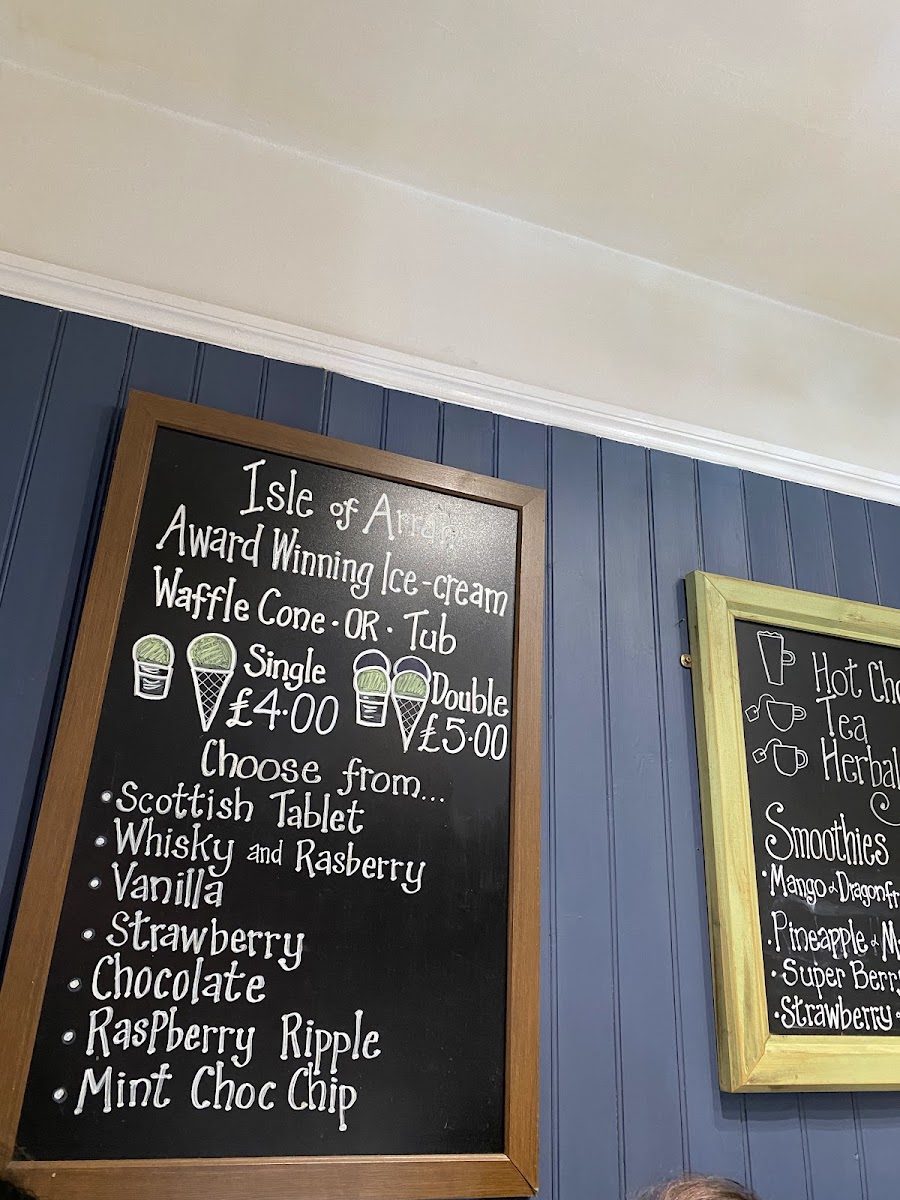 Isle of Arran
Award Winning Ice-cream
Waffle Cone · OR · Tub
Single
£4.00
Double
£5.00
Choose from...
• Scottish Tablet
• Whisky and Rasberry
• Vanilla
• Strawberry
• Chocolate
• Raspberry Ripple
• Mint Choc Chip
Hot
Tea
Herbal
Smoothies
• Mango &
• Pineapple &
• Super
• Strawberry